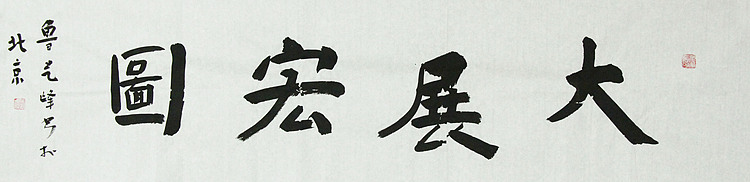 大展宏圖
魯是峰書於
北京